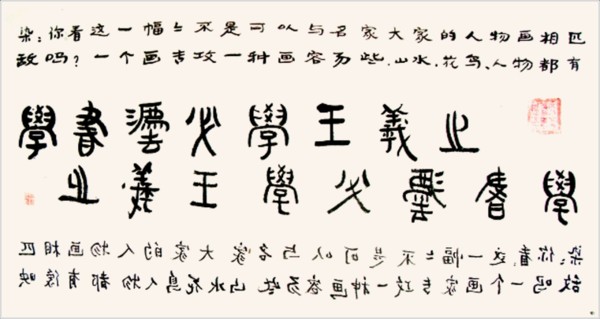 梁：你看这一幅々不是可以与名家大家的人物画相匹
敌吗？一个画专攻一种画容易些.山水.花鸟、人物都有
學書灋必學王羲之
學書灋必學王羲之
梁：你看，这一幅々不是可以与名家大家的人物画相匹
敌吗一个画家专攻一种画容易些山水花鸟人物都有